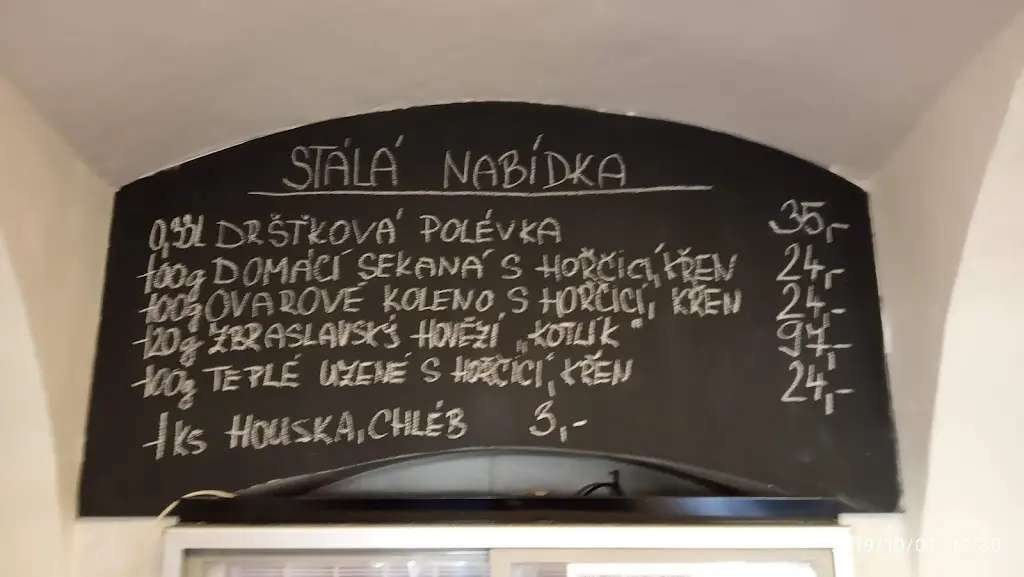 STÁLÁ NABÍDKA
0,33l DRŠŤKOVÁ POLÉVKA 35,-
100g DOMÁCÍ SEKANÁ S HOŘČICÍ, KŘEN 24,-
100g OVAROVÉ KOLENO S HOŘČICÍ, KŘEN 24,-
120g ZBRASLAVSKÝ HOVĚZÍ „KOTLÍK" 97,-
100g TEPLÉ UZENÉ S HOŘČICÍ, KŘEN 24,-
1ks HOUSKA, CHLÉB 3,-